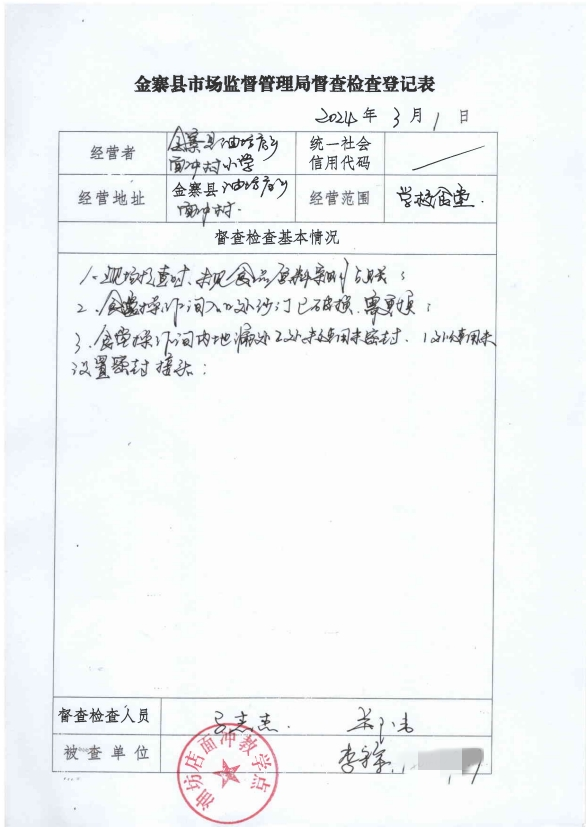 金寨县市场监督管理局督查检查登记表
2024年3月1日
经营者
金寨县油坊店乡
面冲村小学
统一社会
信用代码
经营地址
金寨县油坊店乡
面冲村.
经营范围
学校食堂.
督查检查基本情况
1、现场检查时,未见食品原料
2、食堂操作间入口处纱门已破损,需更换;
3、食堂操作间内地漏处2处未使用未密封、1处使用未
设置密封接头;
督查检查人员
被查单位
李
油坊店面冲教学点